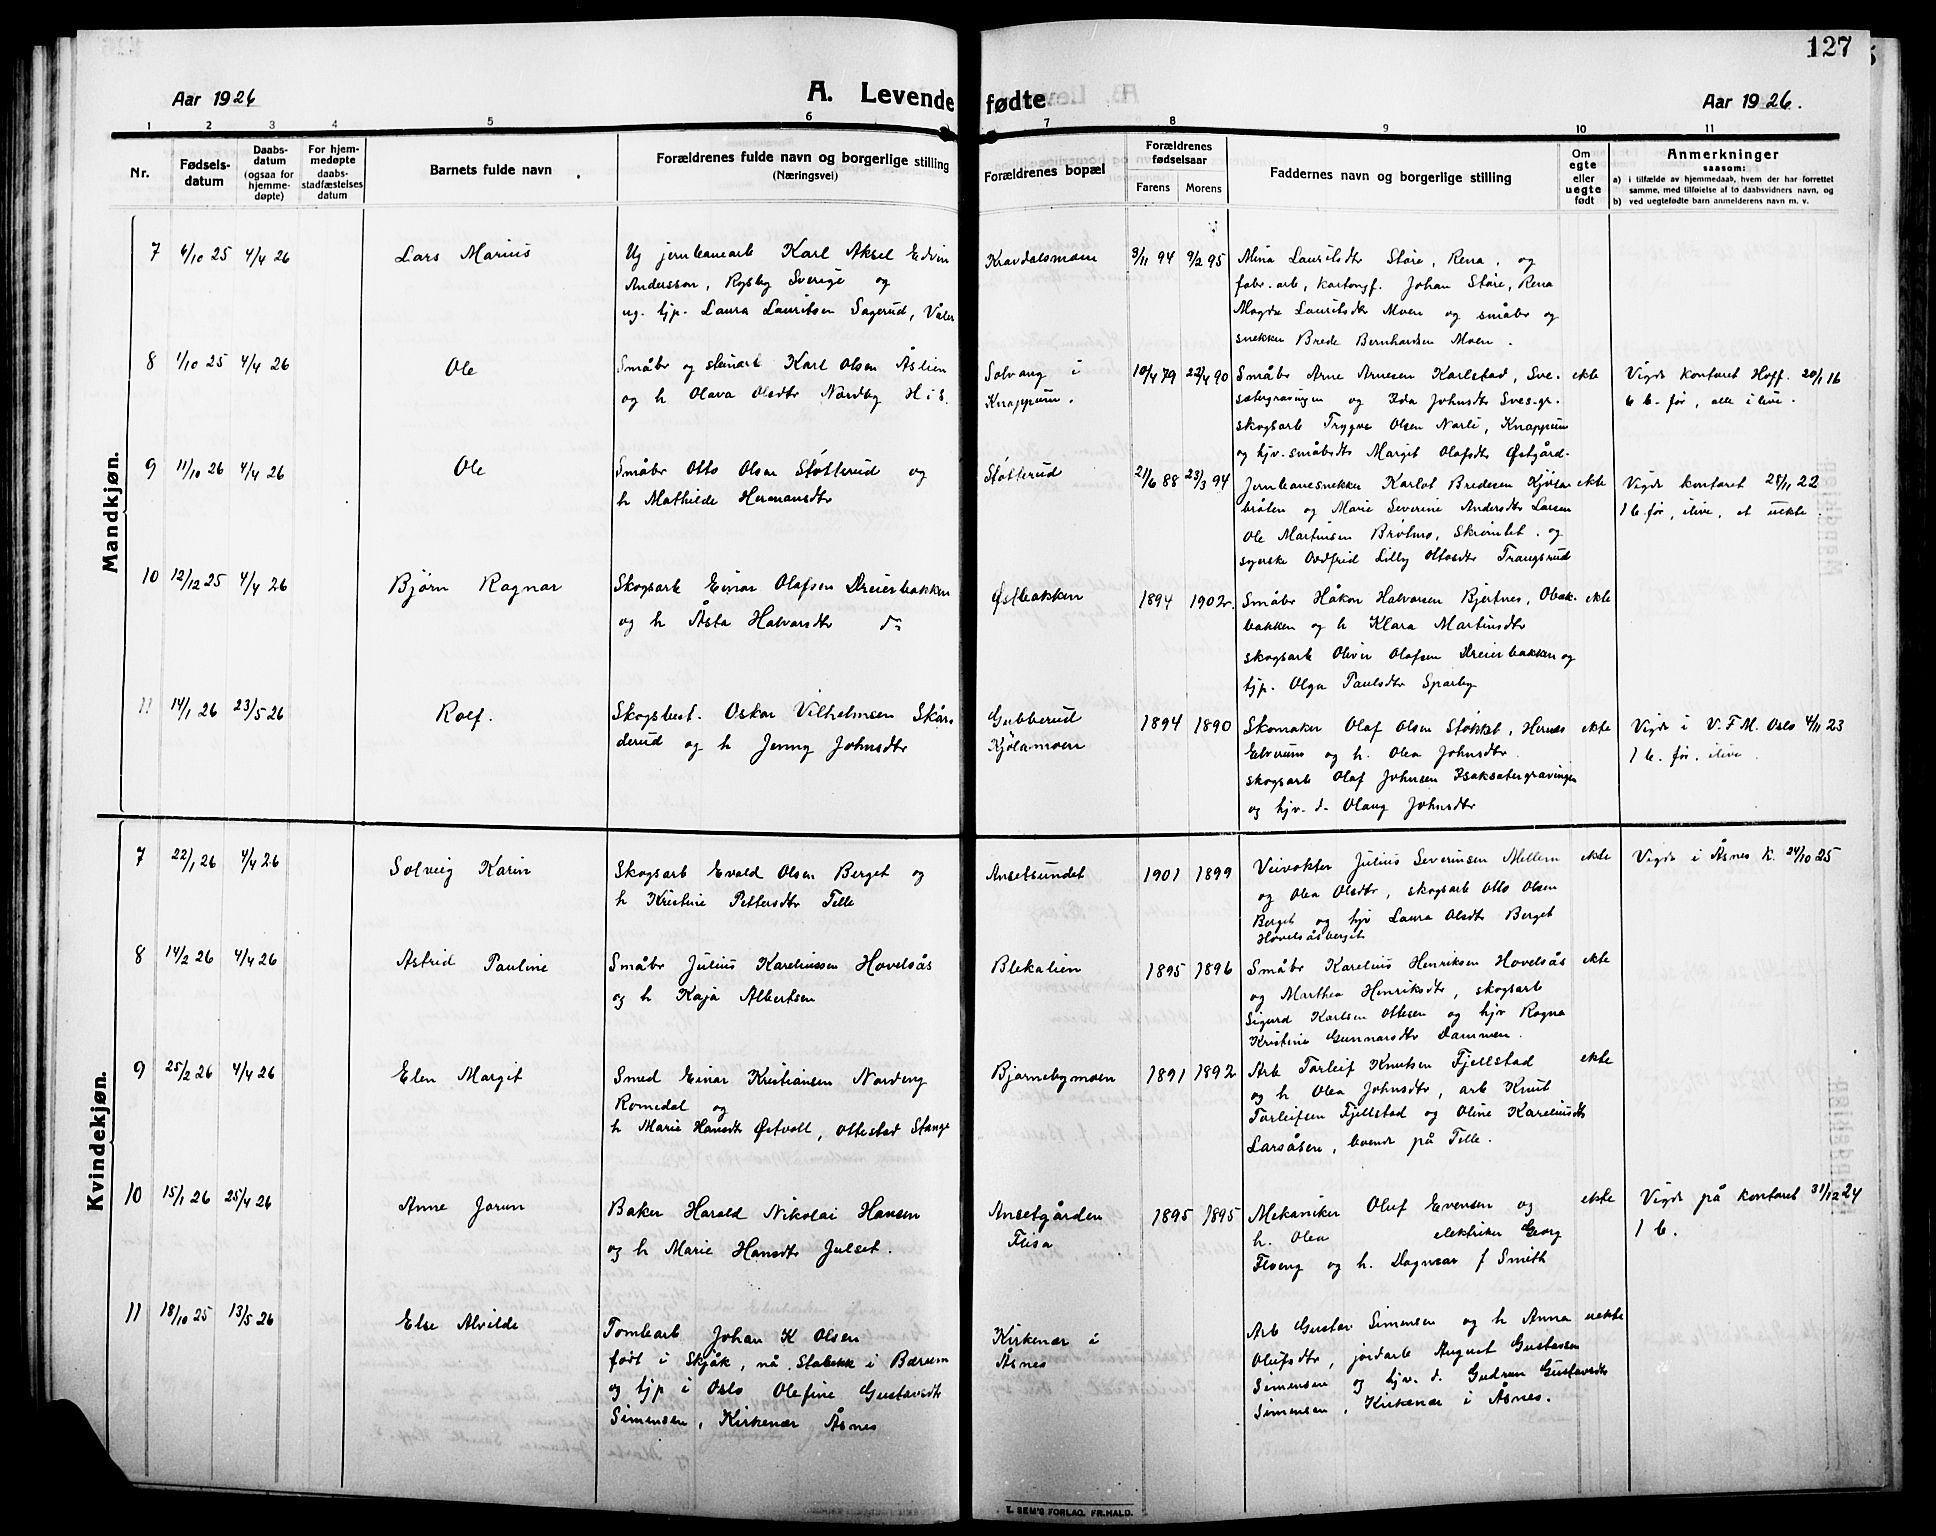 127
Aar 1926
A. Levende fødte
Aar 1926.
1 2 3 4 5 6 7 8 9 10 11
Nr.
Fødsels-
datum
Daabs-
datum
(ogsaa for
hjemme-
døpte)
For hjem-
medøpte
daabs-
stadfæstelses
datum
Barnets fulde navn
Forældrenes fulde navn og borgerlige stilling
(Næringsvei)
Forældrenes bopæl
Forældrenes
fødselsaar
Farens Morens
Faddernes navn og borgerlige stilling
Om
egte
eller
uegte
født
Anmerkninger
saasom:
a) i tilfælde av hjemmedaab, hvem der har forrettet
samme, med tilføielse af to daabsvidners navn, og
b) ved uegtefødte barn anmelderens navn m. v.
Mandkjøn.
7 6/10 25 4/4 26 Lars Marius
Ug jernbanearb Karl Aksel Edvin
Andersson, Rysby Sverige og
ug. tjp. Laura Lauritsen Sagerud, Våler
Kravdalsmoen 3/11 94 9/2 95
Mina Lauritsdtr Støre, Rena, og
fabr. arb, kartongf. Johan Støre, Rena
Magda Lauritsdtr Moen og småbr og
snekker Brede Bernhardsen Moen.
8 1/10 25 4/4 26 Ole
Småbr og stenarb Karl Olsen Åslien
og h Olava Olsdtr Nordby H i S.
Solvang i
Knappum.
10/4 79 22/4 90
Småbr Arne Arnesen Karlstad, Sve-
sætergravingen og Ida Johnsdtr Sves.gr.
skogsarb Trygve Olsen Norli, Knappum
og hjv. småbrdtr Margit Olafsdtr Østgård.
ekte
Vigde kontoret Hoff. 20/1 16
6 b. før, alle ilive.
9 11/10 26 4/4 26 Ole
Småbr Otto Olsen Støtterud og
h Mathilde Hermansdtr
Støtterud 21/6 88 23/3 94
Jernbanesnekker Karlot Bredesen Kjølsæ-
bråten og Marie Severine Andersdtr Larsen
Ole Martinsen Bråtmo, Skramlet. og
syerske Oddfrid Lilly Ottosdtr Trangsrud
ekte
Vigde kontoret 28/11 22
1 b. før, ilive, et uekte.
10 12/12 25 4/4 26 Bjørn Ragnar
Skogsarb Einar Olafsen Dreierbakken
og h Åsta Halvorsdtr do
Østbakken 1894 1902
Småbr Håkon Halvorsen Bjertnes, Obak-
bakken og h Klara Martinsdtr
skogsarb Oliver Olafsen Dreierbakken og
tjp. Olga Paulsdtr Sparby
ekte
11 14/1 26 23/5 26 Rolf.
Skogsbest. Oskar Vilhelmsen Skårs
derud og h Jenny Johnsdtr
Gubberud
Kjølamoen
1894 1890
Skomaker Olaf Olsen Støkket, Hernes
Elverum og h. Olea Johnsdtr.
skogsarb Olaf Johnsen Isaksætergravingen
og hjv. d. Olaug Johnsdtr
ekte
Vigde i V.F.M. Oslo 4/11 23
1 b. før, ilive.
Kvindekjøn.
7 22/1 26 4/4 26 Solveig Karin
Skogsarb Evald Olsen Berget og
h Kristine Pettersdtr Telle
Ansetsundet 1901 1899
Veivokter Julius Severinsen Mellem
og Olea Olsdtr, skogsarb Otto Olsen
Berget og hjv Laura Olsdtr Berget
Hovelsåsberget
ekte
Vigde i Åsnes K. 24/10 25
8 14/2 26 4/4 26 Astrid Pauline
Småbr Julius Kareliussen Hovelsås
og h Kaja Albertsen
Blekalien 1895 1896
Småbr Karelius Henriksen Hovelsås
og Marthea Henriksdtr, skogsarb
Sigurd Karlsen Ottesen og hjv Ragna
Kristine Gunnarsdtr Dammen.
ekte
9 25/2 26 4/4 26 Elen Margit
Smed Einar Kristiansen Nordeng
Romedal og
h Marie Hansdtr Østvoll, Ottestad Stange
Bjørnebymoen 1891 1892
Arb Torleif Knutsen Fjellstad
og h Olea Johnsdtr, arb Knut
Torleifsen Fjellstad og Oline Kareliusdtr
Larsåsen, boende på Telle.
ekte
10 15/1 26 25/4 26 Anne Jorun
Baker Harald Nikolai Hansen
og h Marie Hansdtr Julset.
Ansetgården
Flisa
1895 1895
Mekaniker Oluf Evensen og
h. Olea elektriker Georg
Floeng og h. Dagmar f Smith
ekte
Vigde på kontoret 31/12 24
1 b.
11 18/10 25 13/5 26 Else Alvilde
Tomtearb Johan K Olsen
født i Skjåk, nå Stabekk i Bærum
og tjp i Oslo Olefine Gustavsdtr
Simensen, Kirkenær Åsnes
Kirkenær i
Åsnes
Arb Gustav Simensen og h Anna
Olufsdtr, jordarb August Gustavsen
Simensen og hjv. d. Gudrun Gustavsdtr
Simensen, Kirkenær i Åsnes.
uekte
E. SEM'S FORLAG, FR.HALD.